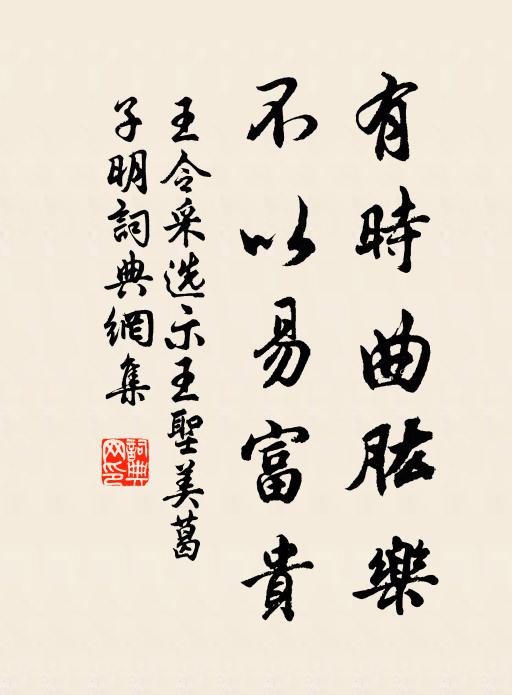 有時曲肱樂
不以易富貴
王令采选示王聖美葛
子明詞典網集
詞典網印